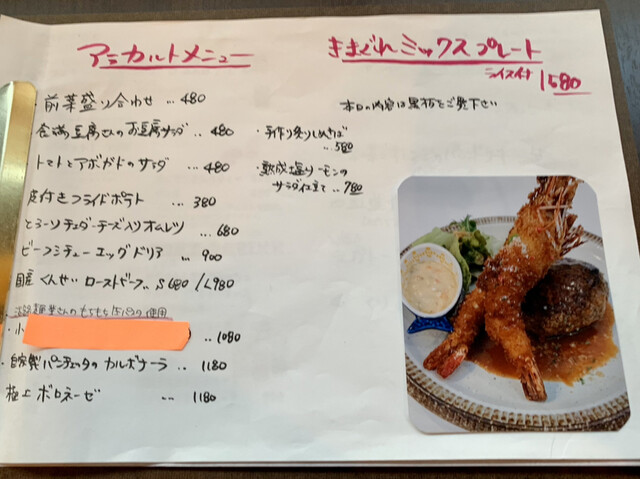 アラカルトメニュー
・前菜盛り合わせ … 480
豆腐さんのお豆腐サラダ .. 480
トマトとアボカドのサラダ … 480
皮付きフライドポテト … 380
とろ〜りチェダーチーズ入りオムレツ … 680
ビーフシチューエッグドリア 〃 900
国産くんせいローストビーフ S680/L980
製麺業さんのもちもち生パスタ使用
・小
… 1080
・自家製パンチェッタのカルボナーラ .. 1180
極上ボロネーゼ … 1180
きまぐれミックスプレート
ライス付 1580
本日の内容は黒板をご覧下さい
・手作り炙りしめさば
.. 580
熟成塩サーモンの
サラダ仕立て .. 780